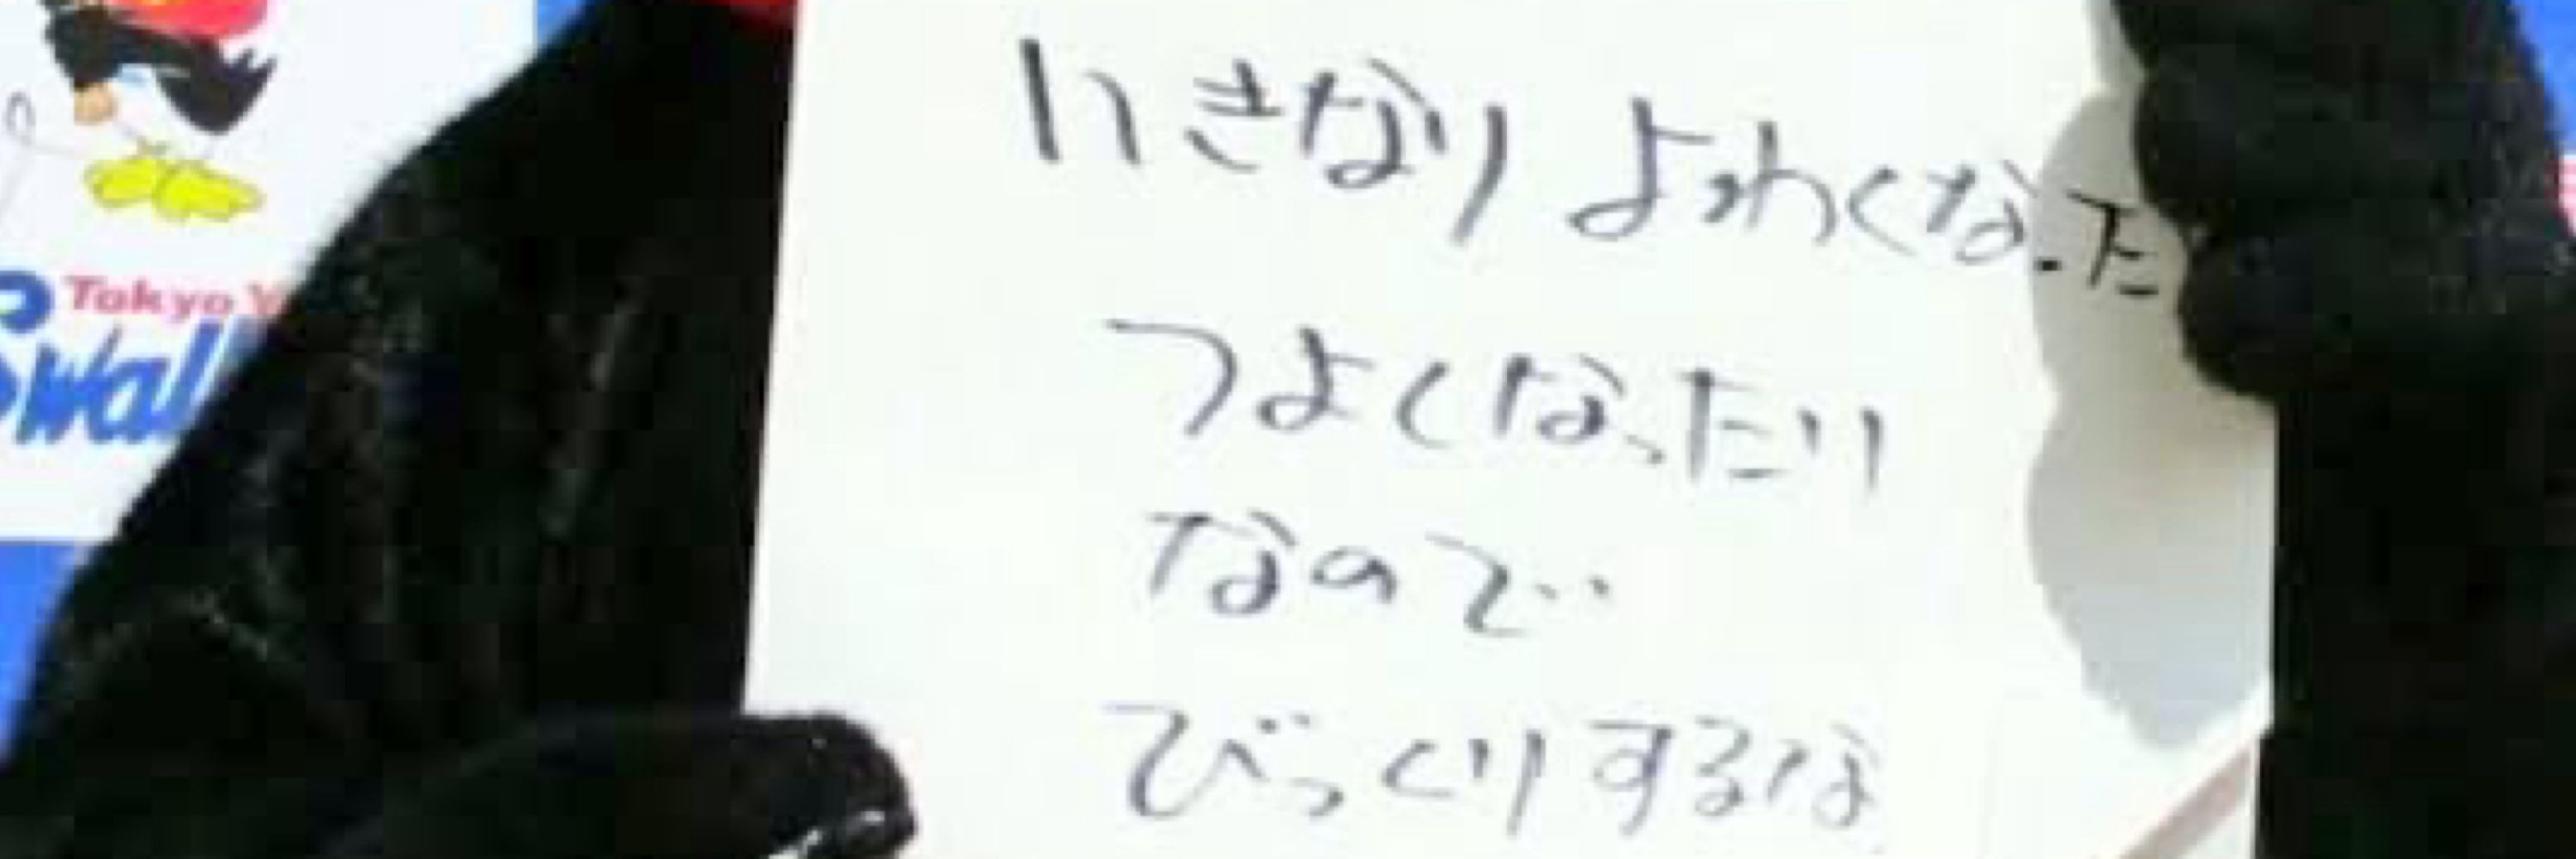 Tokyo Y
Swal
いきなりよわくなった
つよくなったり
なので
びっくりするな